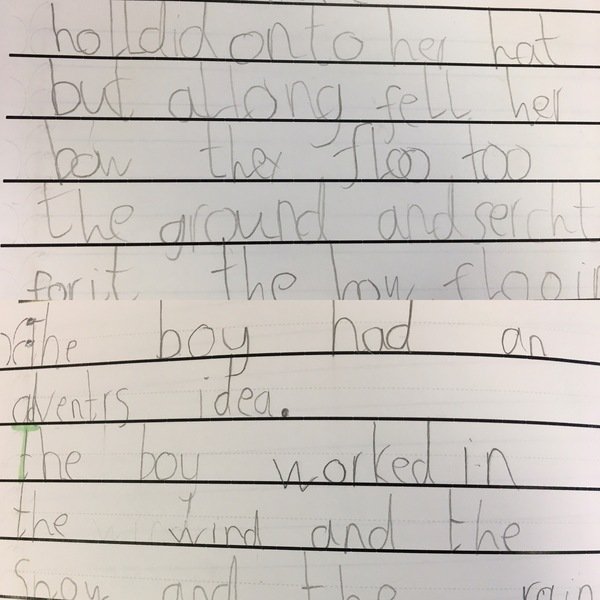 holldid onto her hat
but allong fell her
bow they floo too
the ground and sercht
for it the bow floo in
the boy had an
adventrs idea.
the boy worked in
the wind and the
Snow and the rain